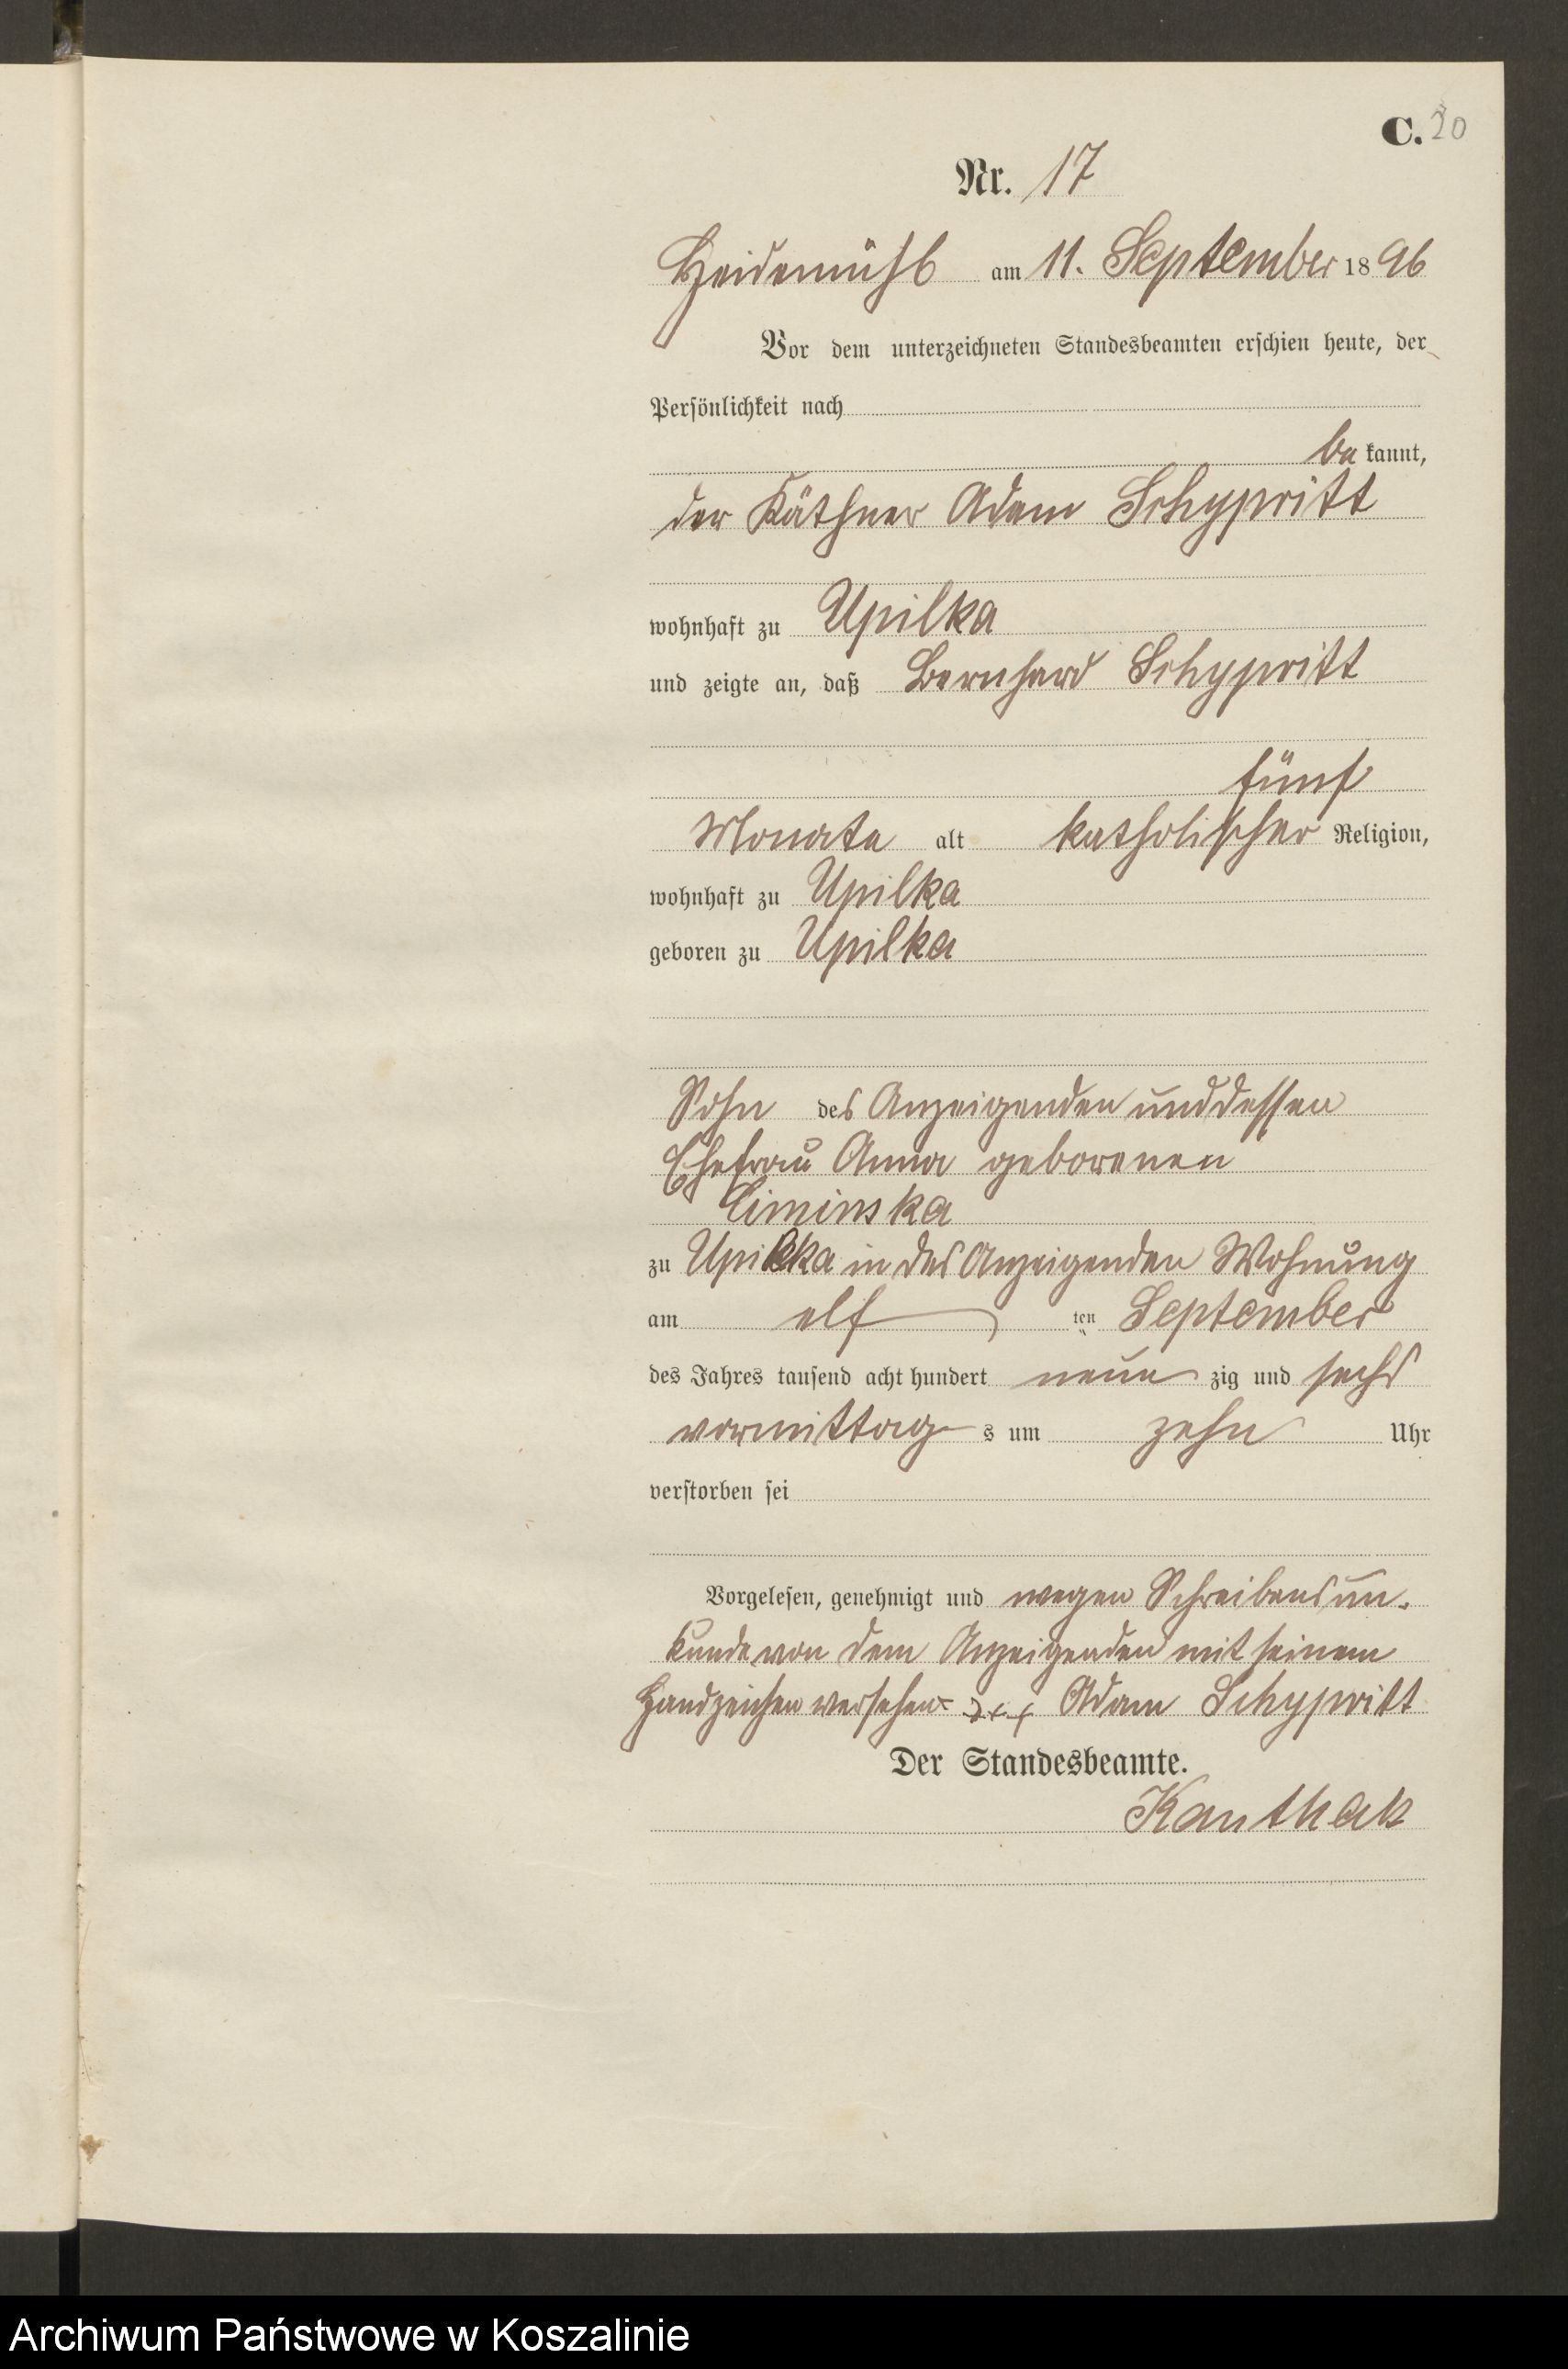 C. 20
Nr. 17
Heidemühl am 11. September 1896
Vor dem unterzeichneten Standesbeamten erschien heute, der
Persönlichkeit nach
be kannt,
der Käthner Adam Schypritt
wohnhaft zu Upilka
und zeigte an, daß Bernhard Schypritt
fünf
Monate alt katholischer Religion,
wohnhaft zu Upilka
geboren zu Upilka
Sohn des Anzeigenden und dessen
Ehefrau Anna geborenen
Ciminska
zu Upilka in des Anzeigenden Wohnung
am elf ten September
des Jahres tausend acht hundert neun zig und sechs
vormittag s um zehn Uhr
verstorben sei
Vorgelesen, genehmigt und wegen Schreibensun-
kunde von dem Anzeigenden mit seinem
Handzeichen versehen xxx Adam Schypritt
Der Standesbeamte.
Kanthak
Archiwum Państwowe w Koszalinie